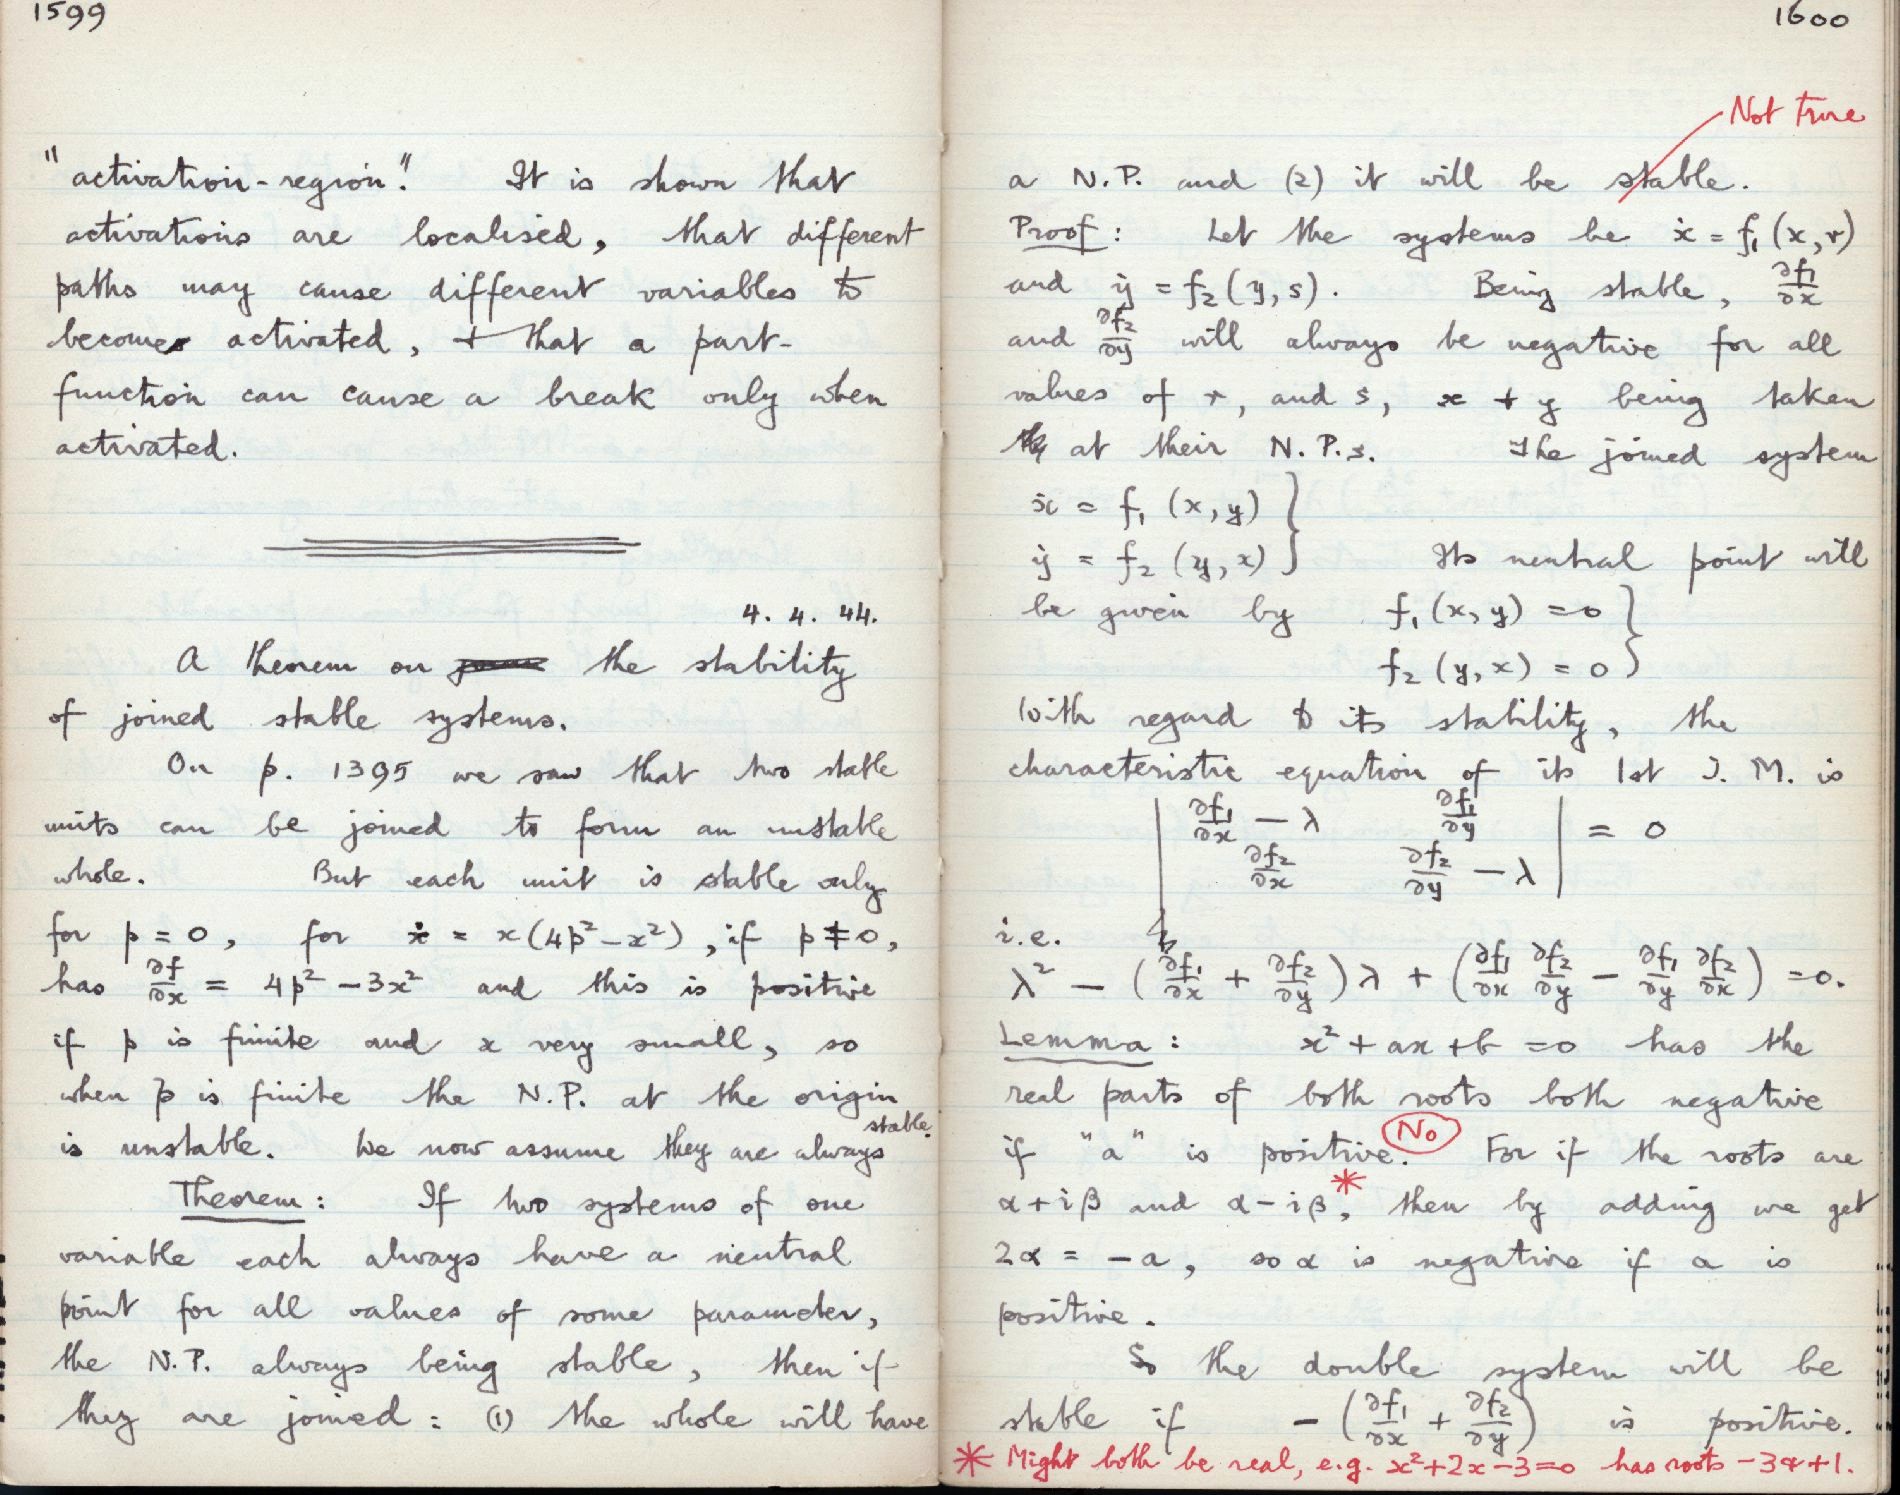 1599
"activation-region". It is shown that
activations are localised, that different
paths may cause different variables to
become activated, + that a part-
function can cause a break only when
activated.
4. 4. 44.
A theorem on the stability
of joined stable systems.
On p. 1395 we saw that two stable
units can be joined to form an unstable
whole. But each unit is stable only
for p = 0, for ẋ = x(4p²-x²), if p ≠ 0,
has ∂f/∂x = 4p² - 3x² and this is positive
if p is finite and x very small, so
when p is finite the N.P. at the origin
is unstable. We now assume they are always stable.
Theorem: If two systems of one
variable each always have a neutral
point for all values of some parameter,
the N.P. always being stable, then if
they are joined: (1) the whole will have
1600
Not true
a N.P. and (2) it will be stable.
Proof: Let the systems be ẋ = f₁(x, r)
and ẏ = f₂(y, s). Being stable, ∂f₁/∂x
and ∂f₂/∂y will always be negative for all
values of r, and s, x + y being taken
at their N.P.s. The joined system
ẋ = f₁ (x, y) }
ẏ = f₂ (y, x) } Its neutral point will
be given by f₁(x, y) = 0 }
f₂ (y, x) = 0 }
With regard to its stability, the
characteristic equation of its 1st J. M. is
| ∂f₁/∂x - λ ∂f₁/∂y |
| ∂f₂/∂x ∂f₂/∂y - λ | = 0
i.e.
λ² - (∂f₁/∂x + ∂f₂/∂y)λ + (∂f₁/∂x ∂f₂/∂y - ∂f₁/∂y ∂f₂/∂x) = 0.
Lemma: x² + ax + b = 0 has the
real parts of both roots both negative
if "a" is positive. No For if the roots are
α + iβ and α - iβ,* then by adding we get
2α = -a, so α is negative if a is
positive.
So the double system will be
stable if - (∂f₁/∂x + ∂f₂/∂y) is positive.
* Might both be real, e.g. x²+2x-3=0 has roots -3 & +1.